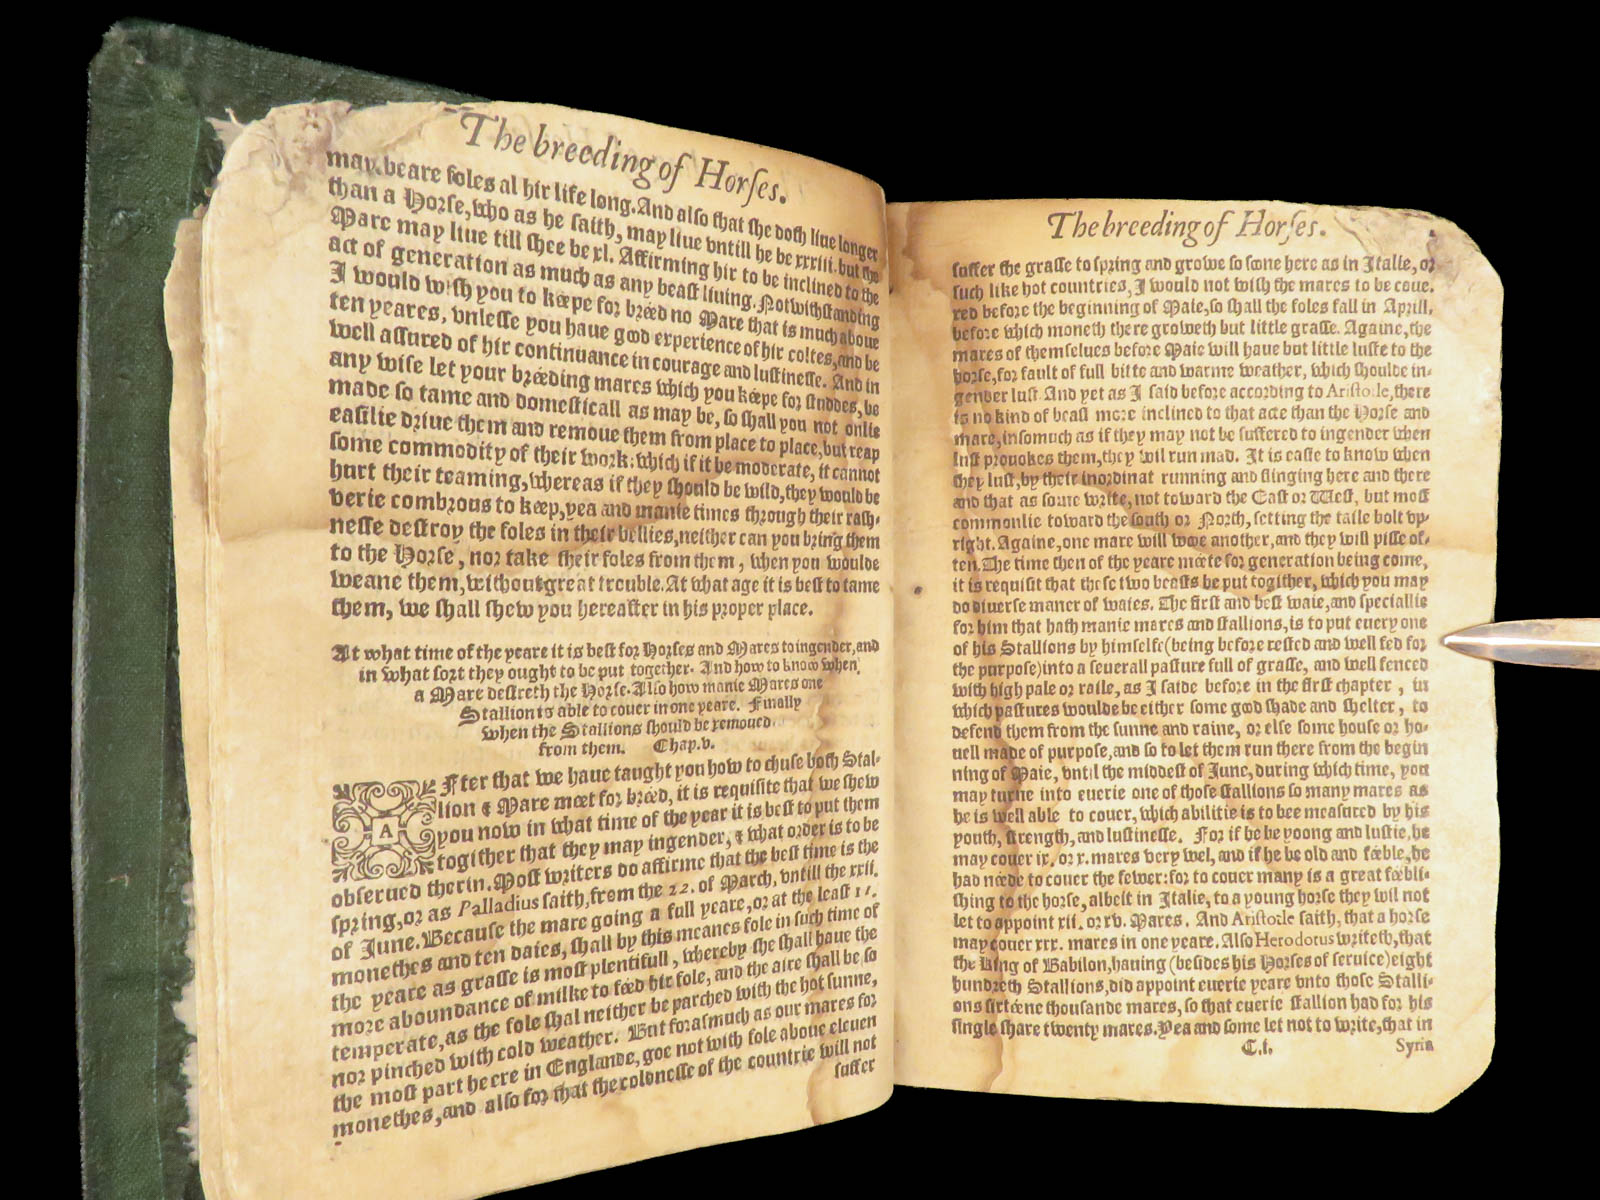 The breeding of Horſes.
may beare foles al hir life long. And alſo that ſhe doth liue longer
than a Horſe, who as he ſaith, may liue vntill he be xxxiii. but the
Mare may liue till ſhee be xl. Affirming hir to be inclined to the
act of generation as much as any beaſt liuing. Notwithſtanding
I would wiſh you to kéepe for bréed no Mare that is much aboue
ten yeares, vnleſſe you haue good experience of hir coltes, and be
well aſſured of hir continuance in courage and luſtineſſe. And in
any wiſe let your bréeding mares which you kéepe for ſtuddes, be
made ſo tame and domeſticall as may be, ſo ſhall you not onlie
eaſilie driue them and remoue them from place to place, but reap
ſome commodity of their work: which if it be moderate, it cannot
hurt their teaming, whereas if they ſhould be wild, they would be
verie combrous to kéep, yea and manie times through their raſh-
neſſe deſtroy the foles in their bellies, neither can you bring them
to the Horſe, nor take their foles from them, when you woulde
weane them, without great trouble. At what age it is beſt to tame
them, we ſhall ſhew you hereafter in his proper place.
At what time of the yeare it is beſt for Horſes and Mares to ingender, and
in what ſort they ought to be put together. And how to know when
a Mare deſireth the Horſe. Alſo how manie Mares one
Stallion is able to couer in one yeare. Finally
when the Stallions ſhould be remoued
from them. Chap.v.
AFter that we haue taught you how to chuſe both Stal-
lion & Mare méet for bréed, it is requiſite that we ſhew
you now in what time of the year it is beſt to put them
togither that they may ingender, & what order is to be
obſerued therin. Moſt writers do affirme that the beſt time is the
ſpring, or as Palladius ſaith, from the 22. of March, vntill the xxii.
of June. Becauſe the mare going a full yeare, or at the leaſt 11.
monethes and ten daies, ſhall by this meanes fole in ſuch time of
the yeare as graſſe is moſt plentifull, whereby ſhe ſhall haue the
more aboundance of milke to féed hir fole, and the aire ſhall be ſo
temperate, as the fole ſhal neither be parched with the hot ſunne,
nor pinched with cold weather. But foraſmuch as our mares for
the moſt part heere in Englande, goe not with fole aboue eleuen
monethes, and alſo for that the coldneſſe of the countrie will not
ſuffer
The breeding of Horſes.
ſuffer the graſſe to ſpring and growe ſo ſoone here as in Italie, or
ſuch like hot countries, I would not wiſh the mares to be coue-
red before the beginning of Maie, ſo ſhall the foles fall in Aprill,
before which moneth there groweth but little graſſe. Againe, the
mares of themſelues before Maie will haue but little luſte to the
horſe, for fault of full bitte and warme weather, which ſhoulde in-
gender luſt. And yet as I ſaid before according to Ariſtotle, there
is no kind of beaſt more inclined to that acte than the Horſe and
mare, inſomuch as if they may not be ſuffered to ingender when
luſt prouokes them, they wil run mad. It is eaſie to know when
they luſt, by their inordinat running and flinging here and there
and that as ſome write, not toward the Eaſt or Weſt, but moſt
commonlie toward the ſouth or North, ſetting the taile bolt vp-
right. Againe, one mare will wooe another, and they will piſſe of-
ten. The time then of the yeare méete for generation being come,
it is requiſit that theſe two beaſts be put togither, which you may
do diuerſe maner of waies. The firſt and beſt waie, and ſpeciallie
for him that hath manie mares and ſtallions, is to put euery one
of his Stallions by himſelfe (being before reſted and well fed for
the purpoſe) into a ſeuerall paſture full of graſſe, and well fenced
with high pale or raile, as I ſaide before in the firſt chapter, in
which paſtures woulde be either ſome good ſhade and ſhelter, to
defend them from the ſunne and raine, or elſe ſome houſe or ho-
uell made of purpoſe, and ſo to let them run there from the begin
ning of Maie, vntil the middeſt of June, during which time, you
may turne into euerie one of thoſe ſtallions ſo many mares as
he is well able to couer, which abilitie is to bee meaſured by his
youth, ſtrength, and luſtineſſe. For if he be yoong and luſtie, he
may couer ix. or x. mares very wel, and if he be old and féeble, he
had néede to couer the fewer: for to couer many is a great féebli-
ſhing to the horſe, albeit in Italie, to a young horſe they wil not
let to appoint xii. or xv. Mares. And Ariſtotle ſaith, that a horſe
may couer xxx. mares in one yeare. Alſo Herodotus writeth, that
the King of Babilon, hauing (beſides his Horſes of ſeruice) eight
hundreth Stallions, did appoint euerie yeare vnto thoſe Stalli-
ons ſixtéene thouſande mares, ſo that euerie ſtallion had for his
ſingle ſhare twenty mares. Yea and ſome let not to write, that in
C.i. Syria